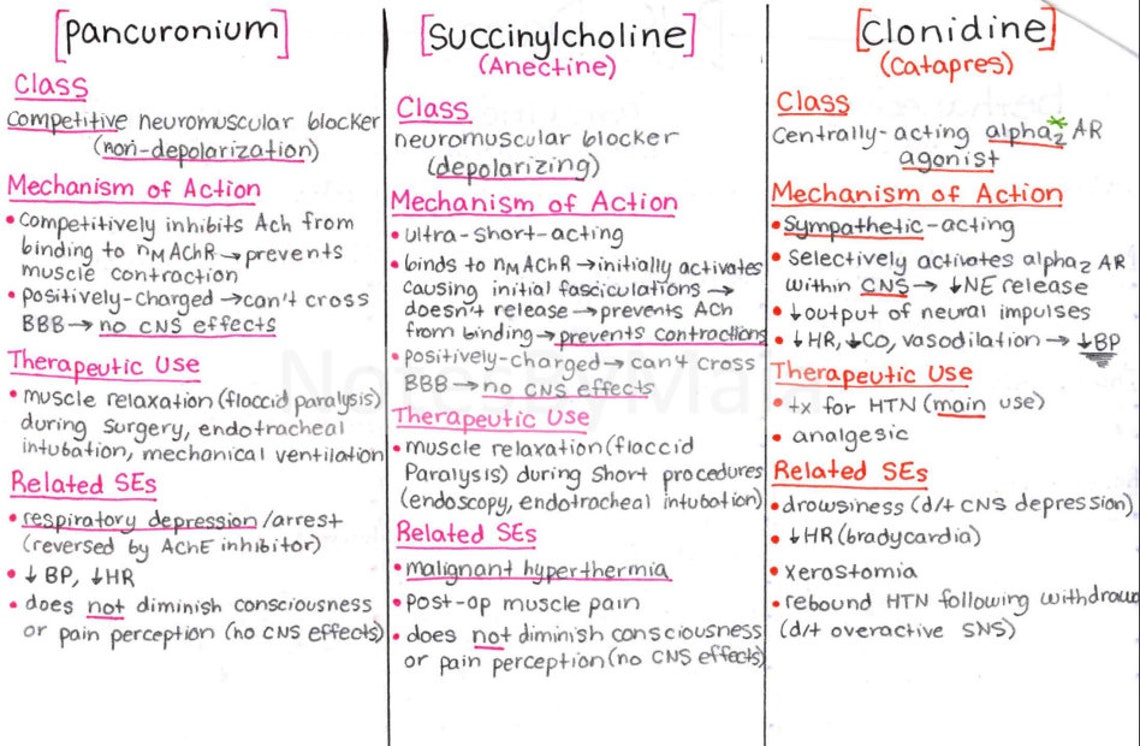 [Pancuronium]
Class
competitive neuromuscular blocker
(non-depolarization)
Mechanism of Action
• competitively inhibits Ach from
binding to nMAChR → prevents
muscle contraction
• positively-charged → can't cross
BBB → no CNS effects
Therapeutic Use
• muscle relaxation (flaccid paralysis)
during surgery, endotracheal
intubation, mechanical ventilation
Related SEs
• respiratory depression/arrest
(reversed by AChE inhibitor)
• ↓ BP, ↓HR
• does not diminish consciousness
or pain perception (no CNS effects)
[Succinylcholine]
(Anectine)
Class
neuromuscular blocker
(depolarizing)
Mechanism of Action
• ultra-short-acting
• binds to nMAChR → initially activates
causing initial fasciculations →
doesn't release → prevents ACh
from binding → prevents contractions
• positively-charged → can't cross
BBB → no CNS effects
Therapeutic Use
• muscle relaxation (flaccid
Paralysis) during short procedures
(endoscopy, endotracheal intubation)
Related SEs
• malignant hyperthermia
• post-op muscle pain
• does not diminish consciousness
or pain perception (no CNS effects)
[Clonidine]
(Catapres)
Class
Centrally-acting alpha2* AR
agonist
Mechanism of Action
• Sympathetic-acting
• selectively activates alpha2 AR
within CNS → ↓NE release
• ↓output of neural impulses
• ↓HR, ↓CO, vasodilation → ↓BP
Therapeutic Use
• tx for HTN (main use)
• analgesic
Related SEs
• drowsiness (d/t CNS depression)
• ↓HR (bradycardia)
• xerostomia
• rebound HTN following withdrawa
(d/t overactive SNS)
NotesByMaja